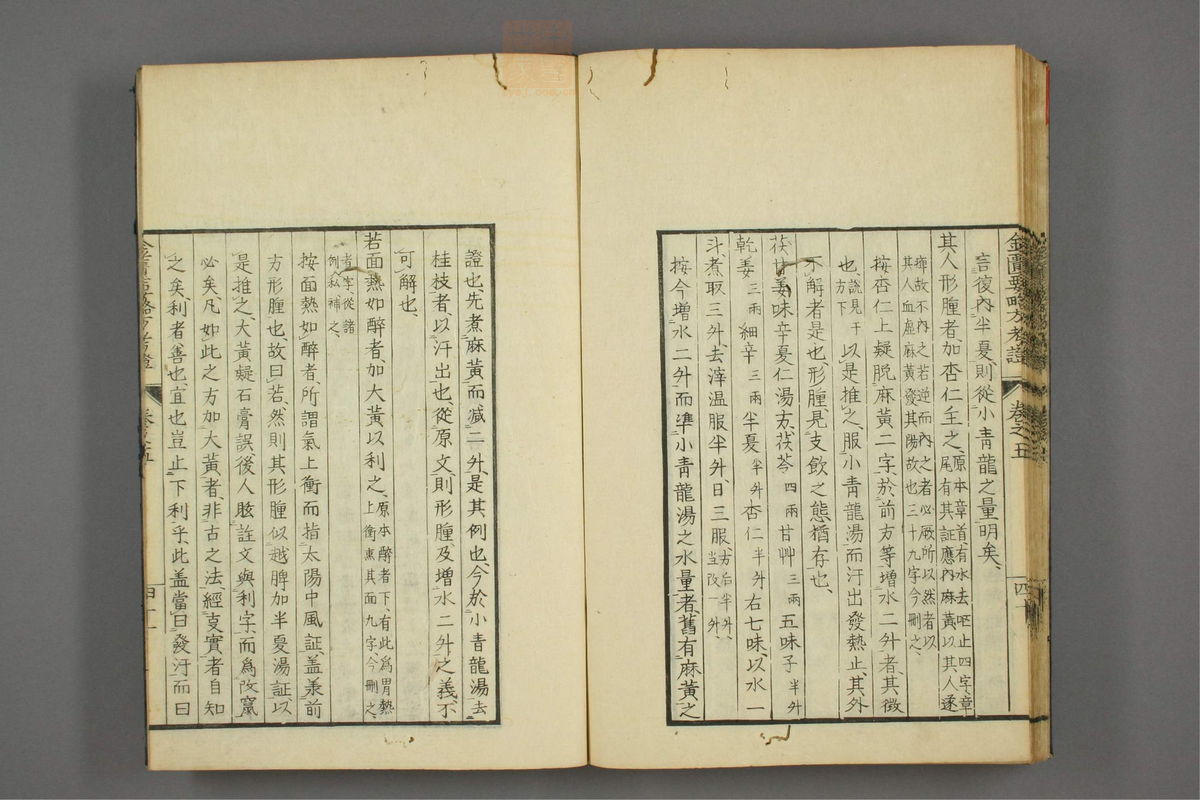 金匱要略方考證 卷之五 四十
言復內半夏、則從小青龍之量明矣、
其人形腫者、加杏仁主之、原本章首、有水去嘔止四字、章
尾有其証應內麻黃、以其人遂
痺故不內之、若逆而內之者、必厥、所以然者、以
其人血虛、麻黃發其陽故也三十九字、今刪之、
按杏仁上疑脫麻黃二字、於前方等增水二升者、其徵
也、說見于
下方 以是推之、服小青龍湯而汗出發熱止、其外
不解者是也、形腫、是支飲之態猶存也、
茯甘姜味辛夏仁湯方、茯苓四兩甘艸三兩五味子半升
乾姜三兩細辛三兩半夏半升杏仁半升右七味、以水一
斗、煮取三升、去滓温服半升、日三服、方后半升、
当改一升、
按今增水二升而準小青龍湯之水量者、舊有麻黃之
證也、先煮麻黃而减二升、是其例也、今於小青龍湯去
桂枝者、以汗出也、從原文、則形腫、及增水二升之義、不
可解也、
若面熱如醉者、加大黃以利之、原本醉者下、有此為胃熱
上衝熏其面九字、今刪之、
者字從諸
例私補之、
按面熱如醉者、所謂氣上衝而指太陽中風証盖兼前
方形腫也、故曰若、然則其形腫似越脾加半夏湯証、以
是推之、大黃疑石膏誤、後人肢詮文與利字、而為改竄
必矣、凡如此之方加大黃者、非古之法經叓實者自知
之矣、利者、善也、宜也豈止下利乎、此盖當曰發汗而曰
卷之五